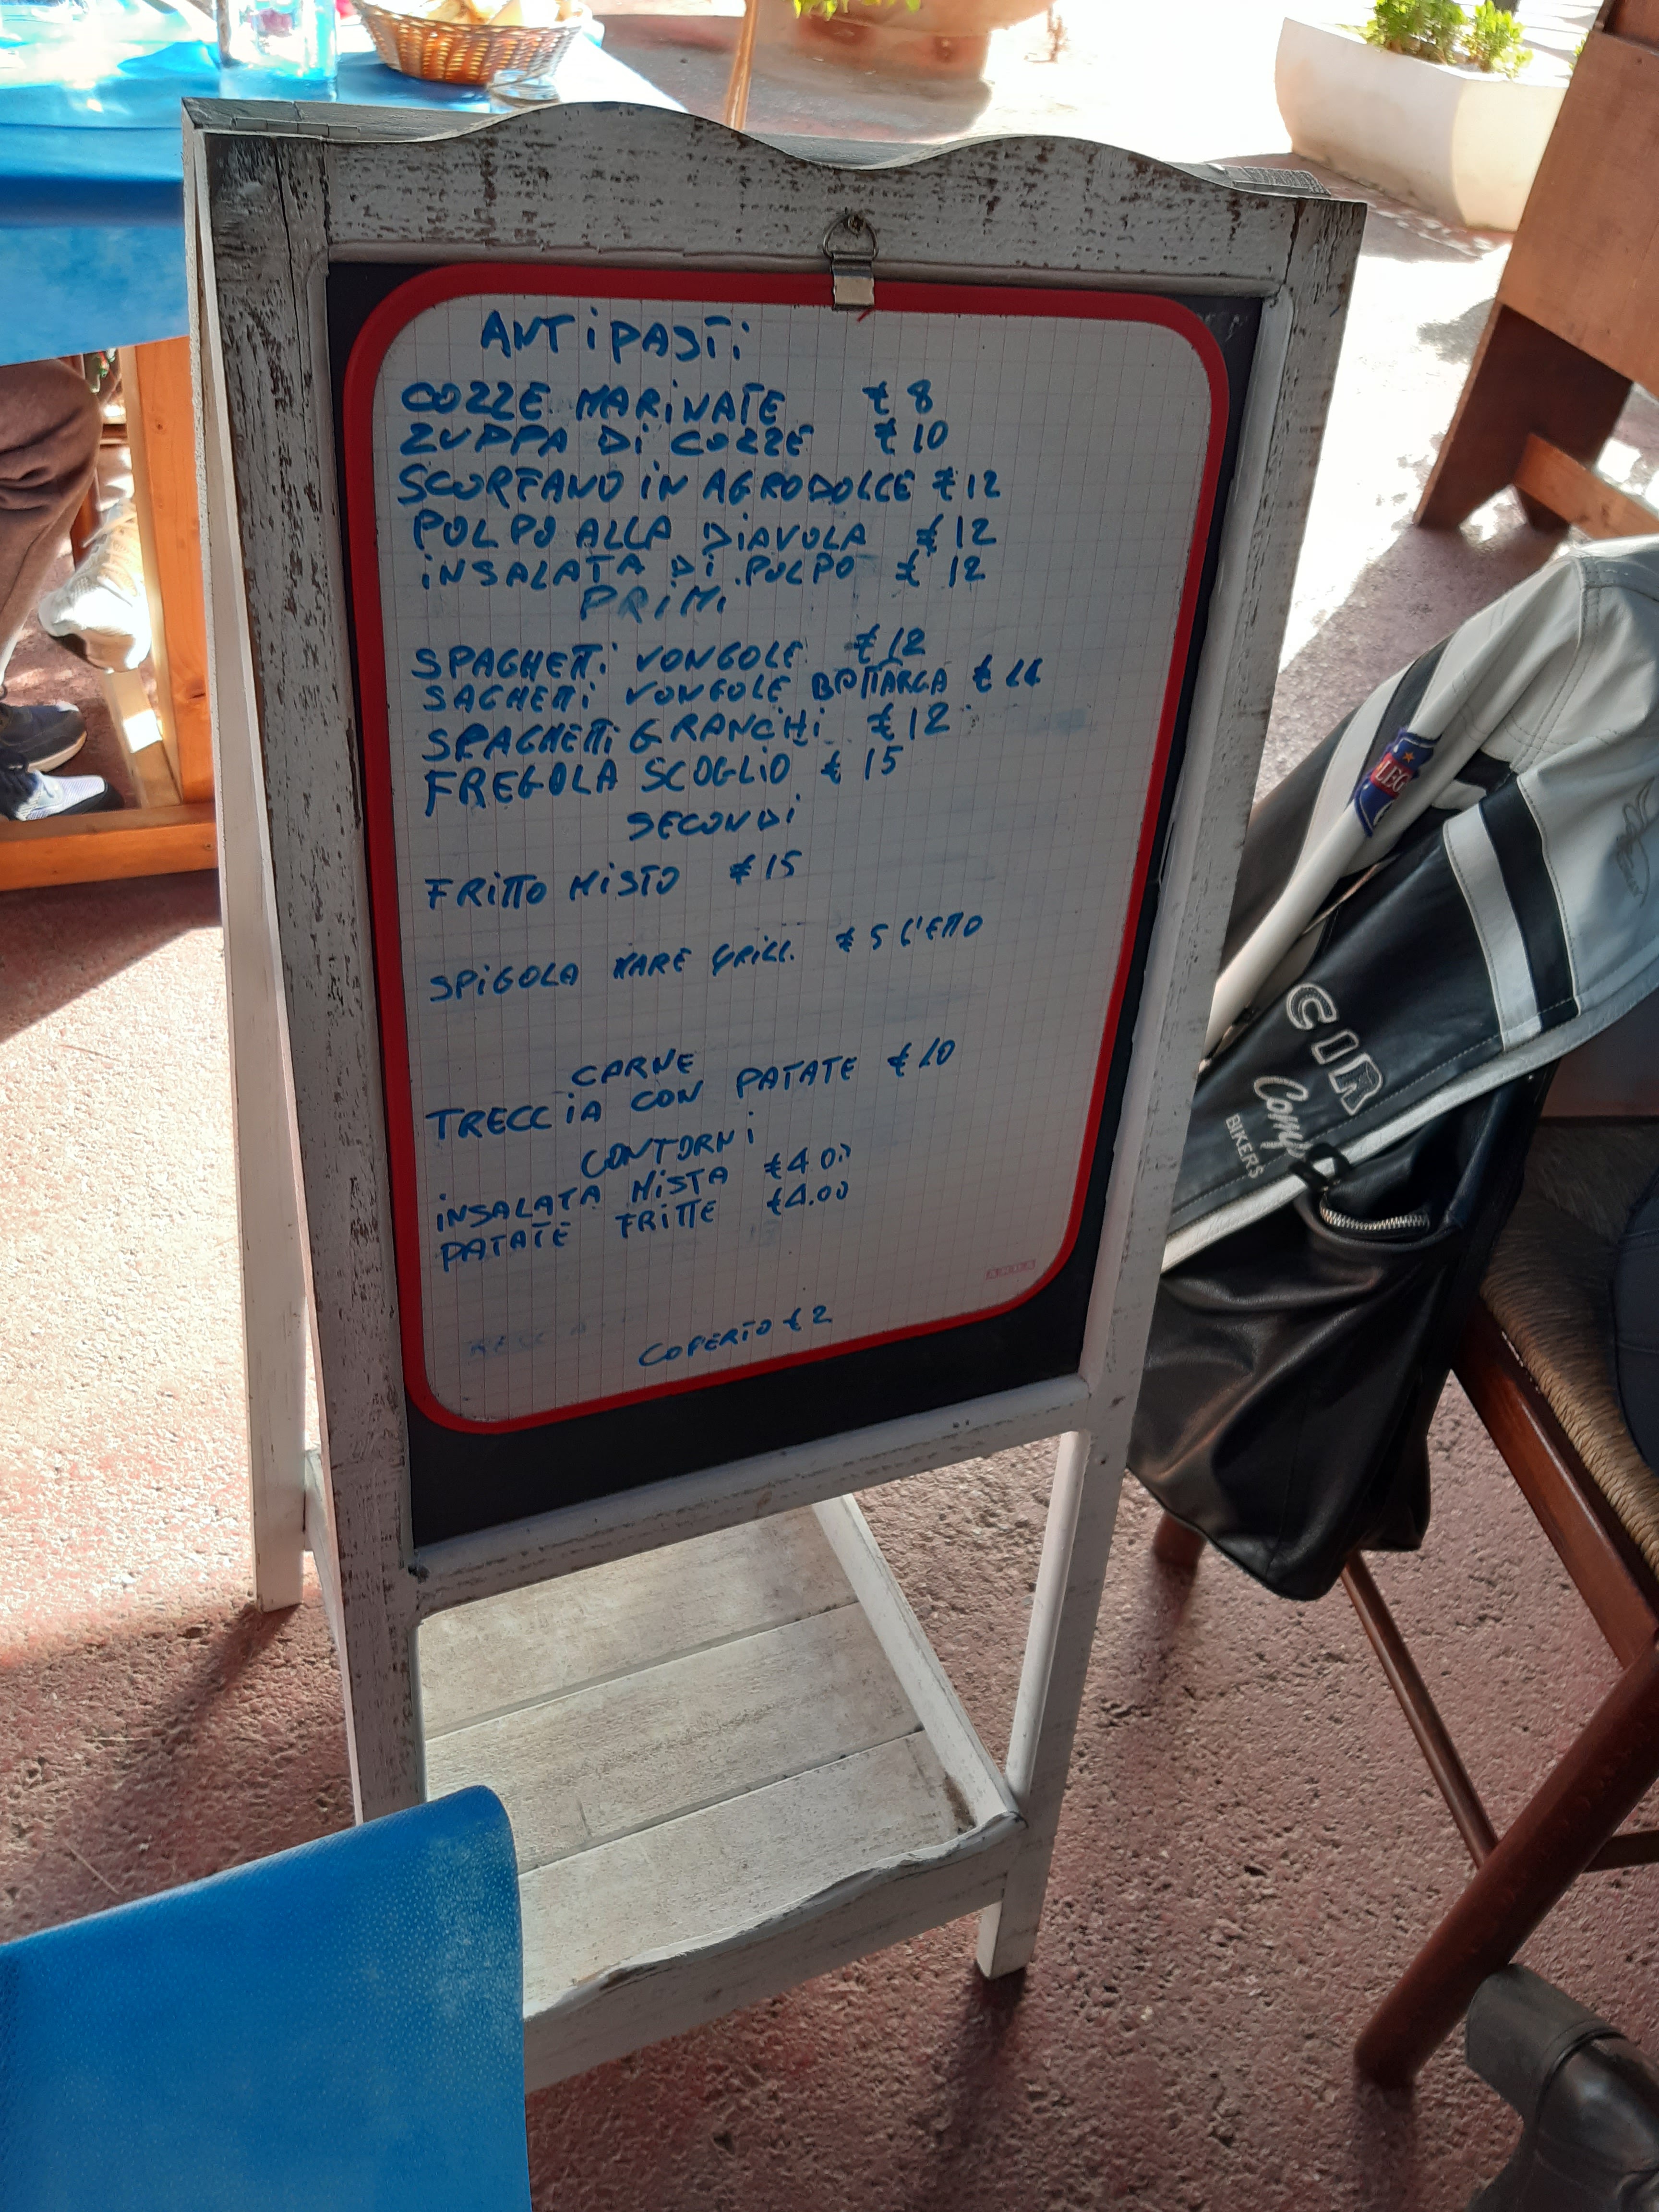 ANTIPASTI
COZZE MARINATE € 8
ZUPPA DI COZZE € 10
SCORFANO IN AGRODOLCE € 12
POLPO ALLA DIAVOLA € 12
INSALATA DI POLPO € 12
PRIMI
SPAGHETTI VONGOLE € 12
SAGHETTI VONGOLE BOTTARGA €
SPAGHETTI GRANCHI € 12
FREGOLA SCOGLIO € 15
SECONDI
FRITTO MISTO € 15
SPIGOLA MARE GRILL. € 5 L'ETTO
CARNE
TRECCIA CON PATATE € 10
CONTORNI
INSALATA MISTA €4.00
PATATE FRITTE €4.00
COPERTO € 2
LEG
BIKERS